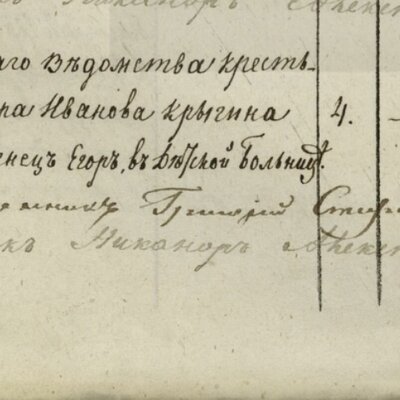 Никаноръ
аго Вѣдомства кресть-
ра Иванова Крыгина 4. -
нецъ Егоръ, въ Дѣтской Больницѣ.
Григорій
Никаноръ